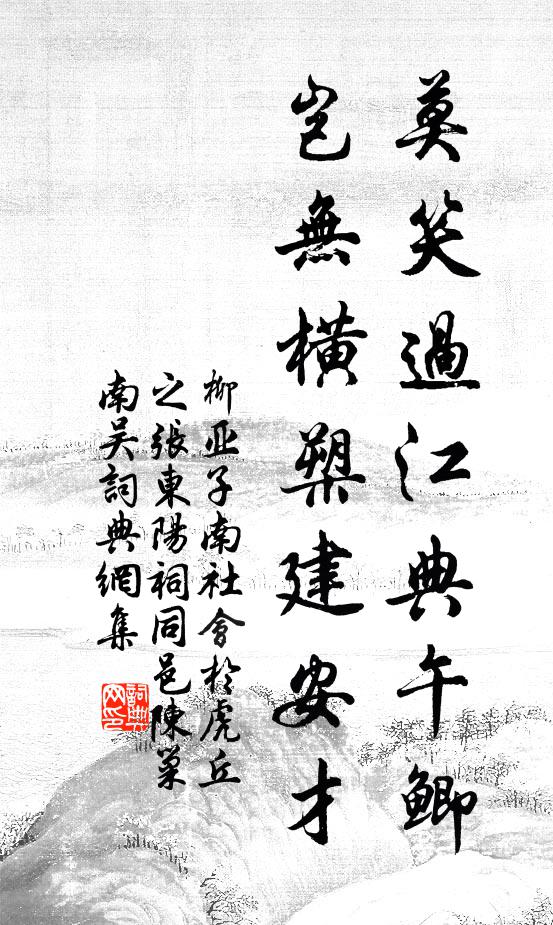 莫笑過江典午鯽
豈無橫槊建安才
柳亚子南社會於虎丘
之張東陽祠同邑陳巢
南吴詞典網集
詞典網印